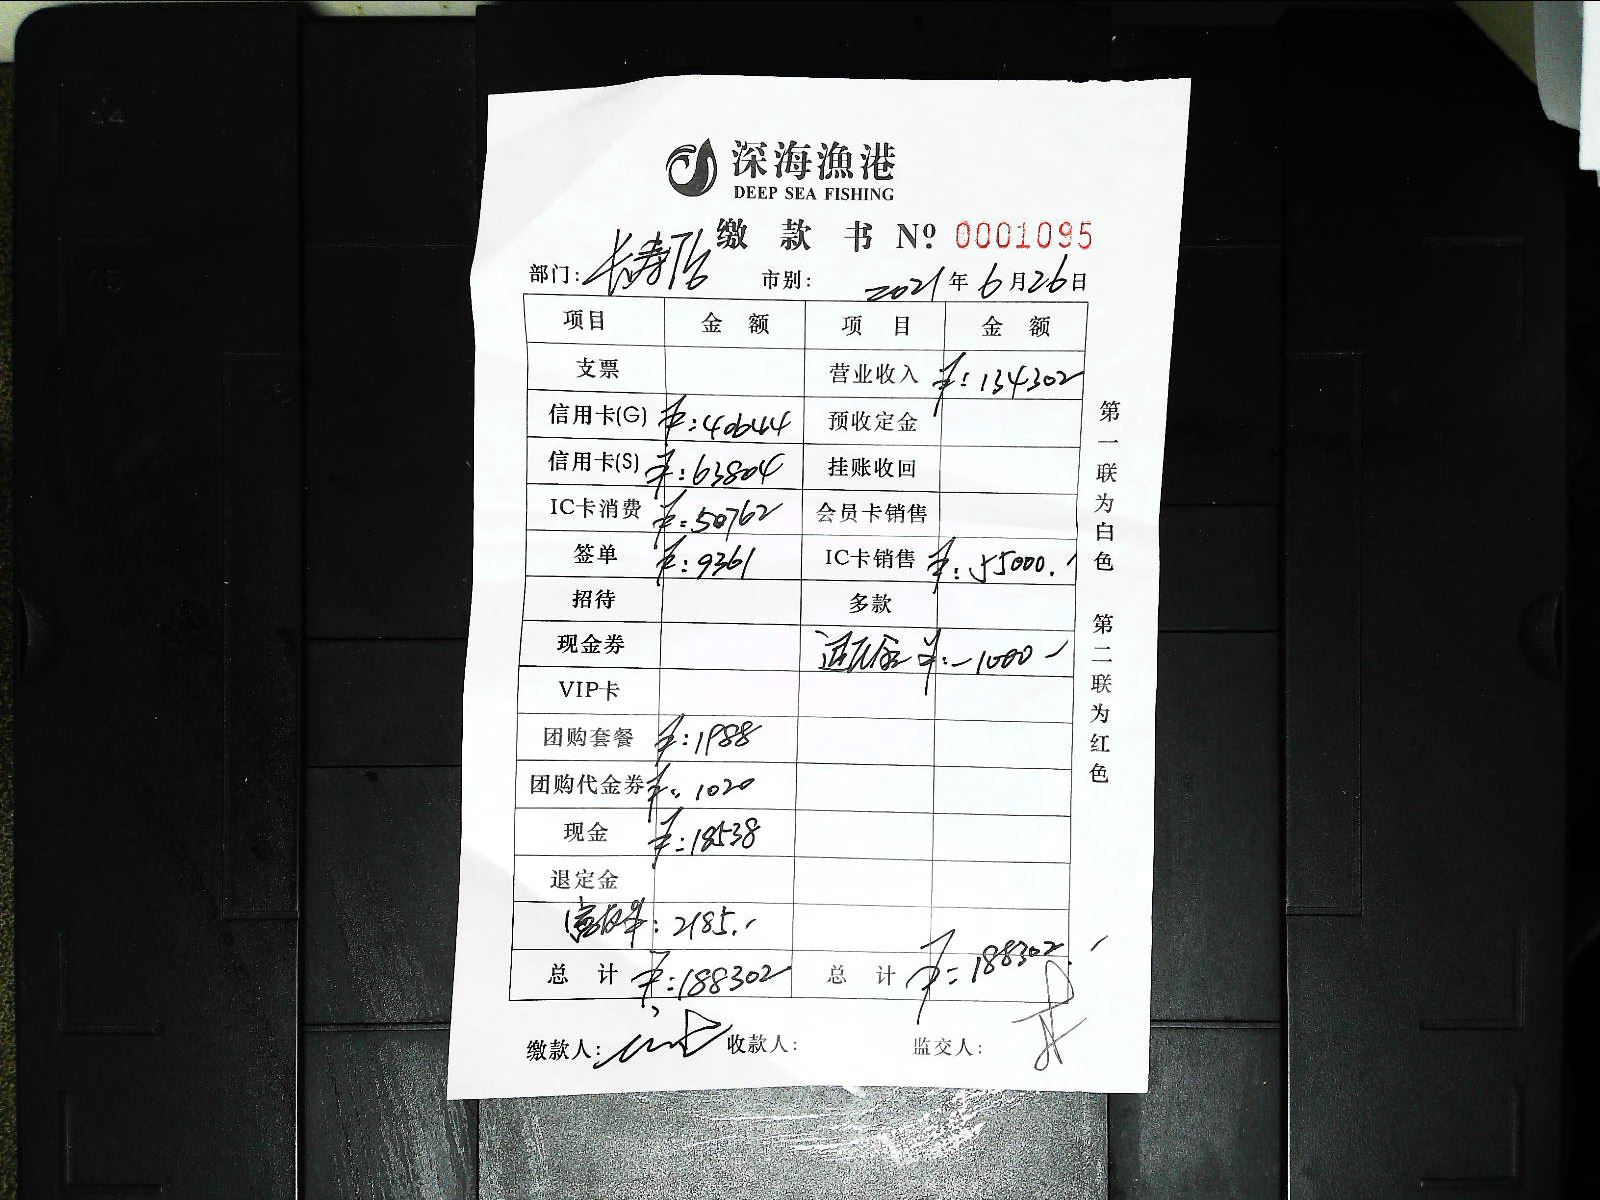 深海漁港
DEEP SEA FISHING
缴款书 Nº 0001095
部门: 长寿店 市别: 2021年6月26日
项目 金额 项目 金额
支票 营业收入 ¥:134302
信用卡(G) ¥:40644 预收定金
信用卡(S) ¥:63804 挂账收回
IC卡消费 ¥:50762 会员卡销售
签单 ¥:9361 IC卡销售 ¥:55000.
招待 多款
现金券 退定金 ¥:-1000
VIP卡
团购套餐 ¥:1988
团购代金券 ¥:1020
现金 ¥:18538
退定金
: 2185.
总计 ¥:188302 总计 ¥:188302.
缴款人: 收款人: 监交人:
第一联为白色 第二联为红色